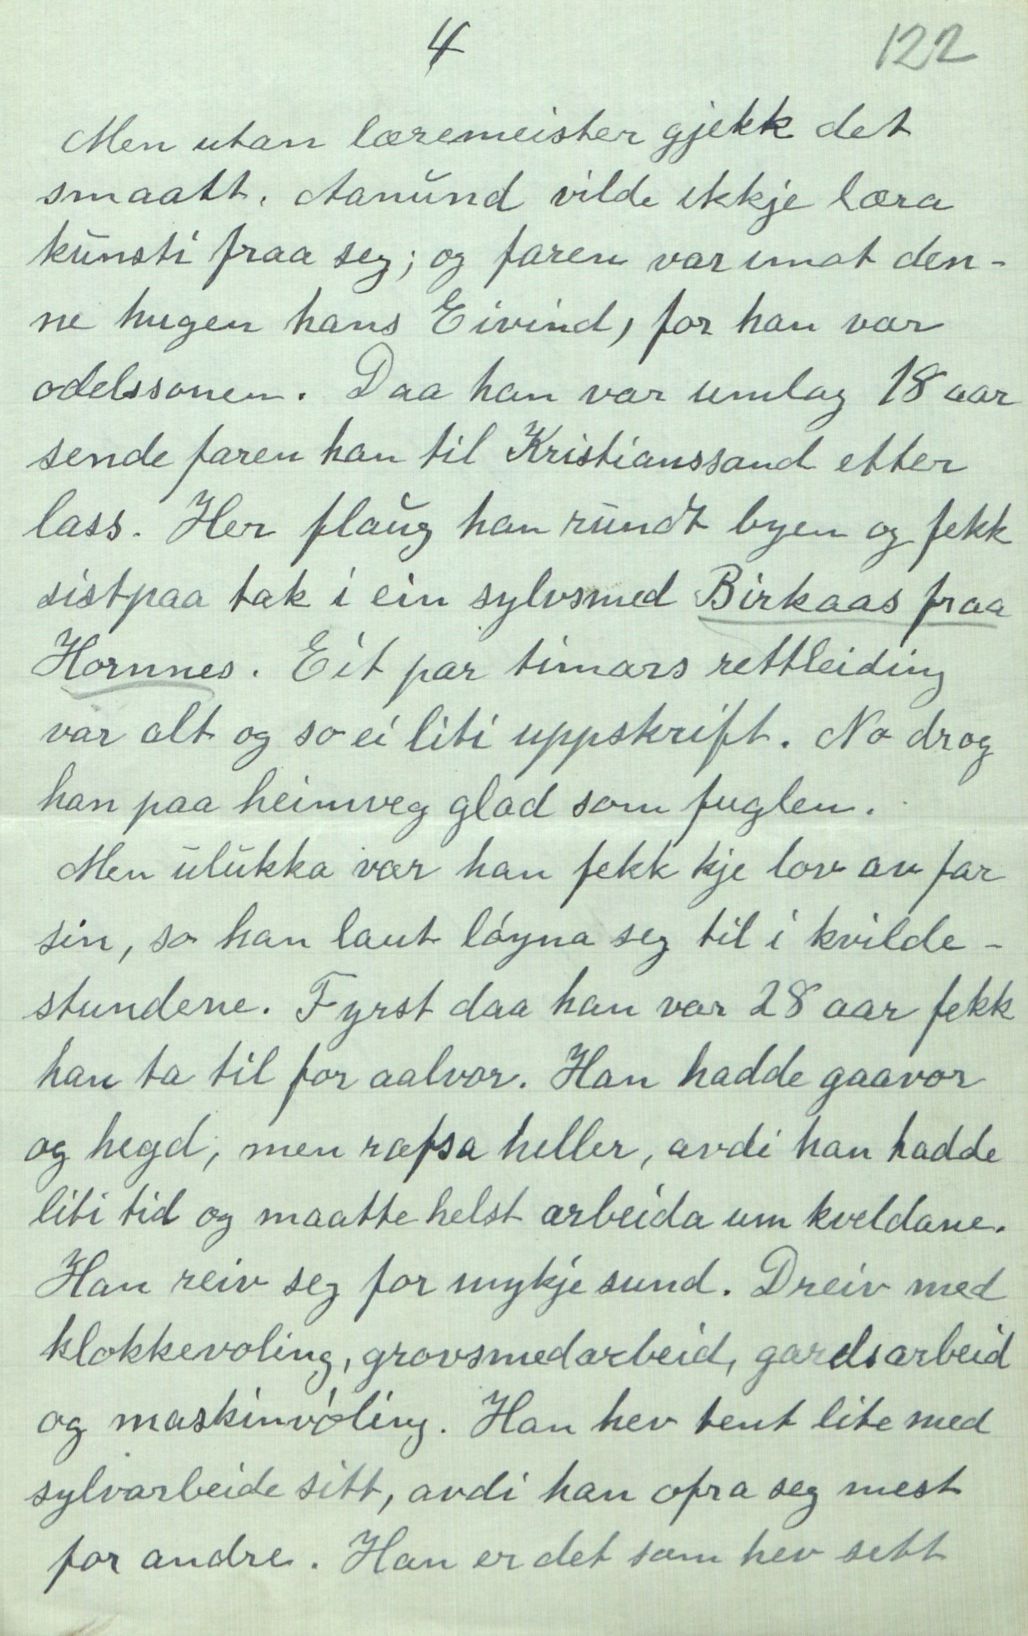 4
122
Men utan læremeister gjekk det
smaatt. Aanund vilde ikkje læra
kunsti fraa seg; og faren var imot den-
ne hugen hans Eivind, for han var
odelssonen. Daa han var umlag 18 aar
sende faren han til Kristianssand etter
lass. Her flaug han rundt byen og fekk
sistpaa tak i ein sylvsmed Birkaas fraa
Hornnes. Eit par timars rettleiding
var alt og so ei liti uppskrift. No drog
han paa heimveg glad som fuglen.
Men ulukka var han fekk kje lov av far
sin, so han laut løyna seg til i kvilde-
stundene. Fyrst daa han var 28 aar fekk
han ta til for aalvor. Han hadde gaavor
og hegd, men ræfsa heller, avdi han hadde
liti tid og maatte helst arbeida um kveldane.
Han reiv seg for mykje sund. Dreiv med
klokkevoling, grovsmedarbeid, gardsarbeid
og maskinvøling. Han hev tent lite med
sylvarbeide sitt, avdi han ofra seg mest
for andre. Han er det som hev sett